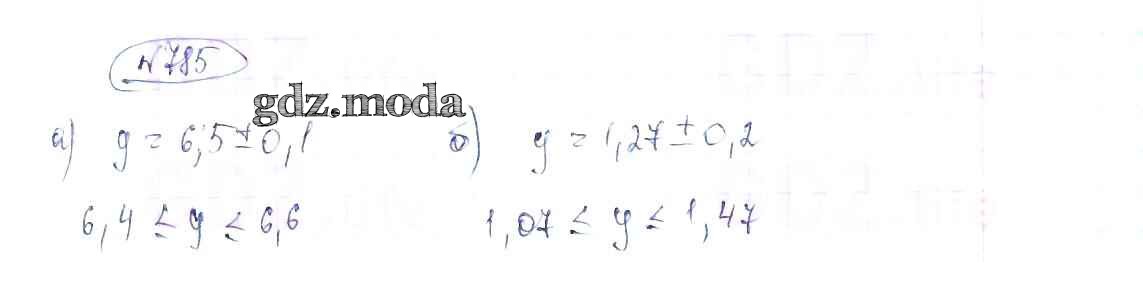 №785
gdz.moda
а) y = 6,5 ± 0,1 б) y = 1,27 ± 0,2
6,4 ≤ y ≤ 6,6 1,07 ≤ y ≤ 1,47